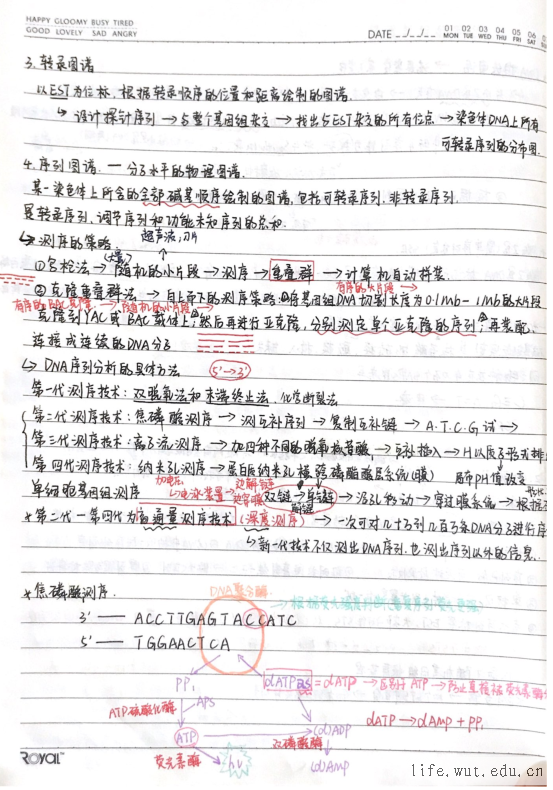 HAPPY GLOOMY BUSY TIRED
GOOD LOVELY SAD ANGRY
DATE _/_/_
01 02 03 04 05 06
MON TUE WED THU FRI SAT
3. 转录图谱
以EST为位标，根据转录顺序的位置和距离绘制的图谱.
↳ 设计探针序列 → 与整个基因组杂交 → 找出与EST杂交的所有位点 → 染色体DNA上所有
可转录序列的分布图.
4. 序列图谱. — 分子水平的物理图谱.
某一染色体上所含的全部碱基顺序绘制的图谱，包括可转录序列，非转录序列.
是转录序列、调节序列和功能未知序列的总和.
↳ 测序的策略 超声波，刀片
①鸟枪法 → 随机的小片段 → 测序 → 重叠群 → 计算机自动拼装.
有序的大片段
②克隆重叠群法 → 自上而下的测序策略 ①将基因组DNA切割长度为0.1Mb-1Mb的片段
有序的BAC克隆 → 随机的小片段
克隆到YAC或BAC载体上，然后再进行亚克隆，分别测定单个亚克隆的序列，再装配、
连接成连续的DNA分子
↳ DNA序列分析的具体方法 5'→3'
第一代测序技术：双脱氧法和末端终止法，化学断裂法
第二代测序技术：焦磷酸测序 → 测互补序列 → 复制互补链 → A.T.C.G试 →
第三代测序技术：离子流测序 → 加四种不同的脱氧核苷酸 → 插入 → H以质子形式排
第四代测序技术：纳米孔测序 → 蛋白质纳米孔 磷脂酸层系统(膜) 局部pH值改变
加电压 边解链
单细胞基因组测序 电泳装置 → 边穿膜 双链→单链 → 沿孔移动 → 穿过膜系统 → 根据
* 第二代-第四代为高通量测序技术 (深度测序) → 一次可对几十万到几百万条DNA分子进行序
↳ 新一代技术不仅测出DNA序列，也测出序列以外的信息.
* 焦磷酸测序.
DNA聚合酶
3' — ACCTTGAGTACCATC
5' — TGGAACTCA
PPi dATPαS = dATP → 区别于ATP → 防止直接被荧光素酶
ATP硫酸化酶 APS
dATP → dAMP + PPi
ATP (d)ADP
荧光素酶 hν 双磷酸酶 (d)AMP
ROYAL
life.wut.edu.cn